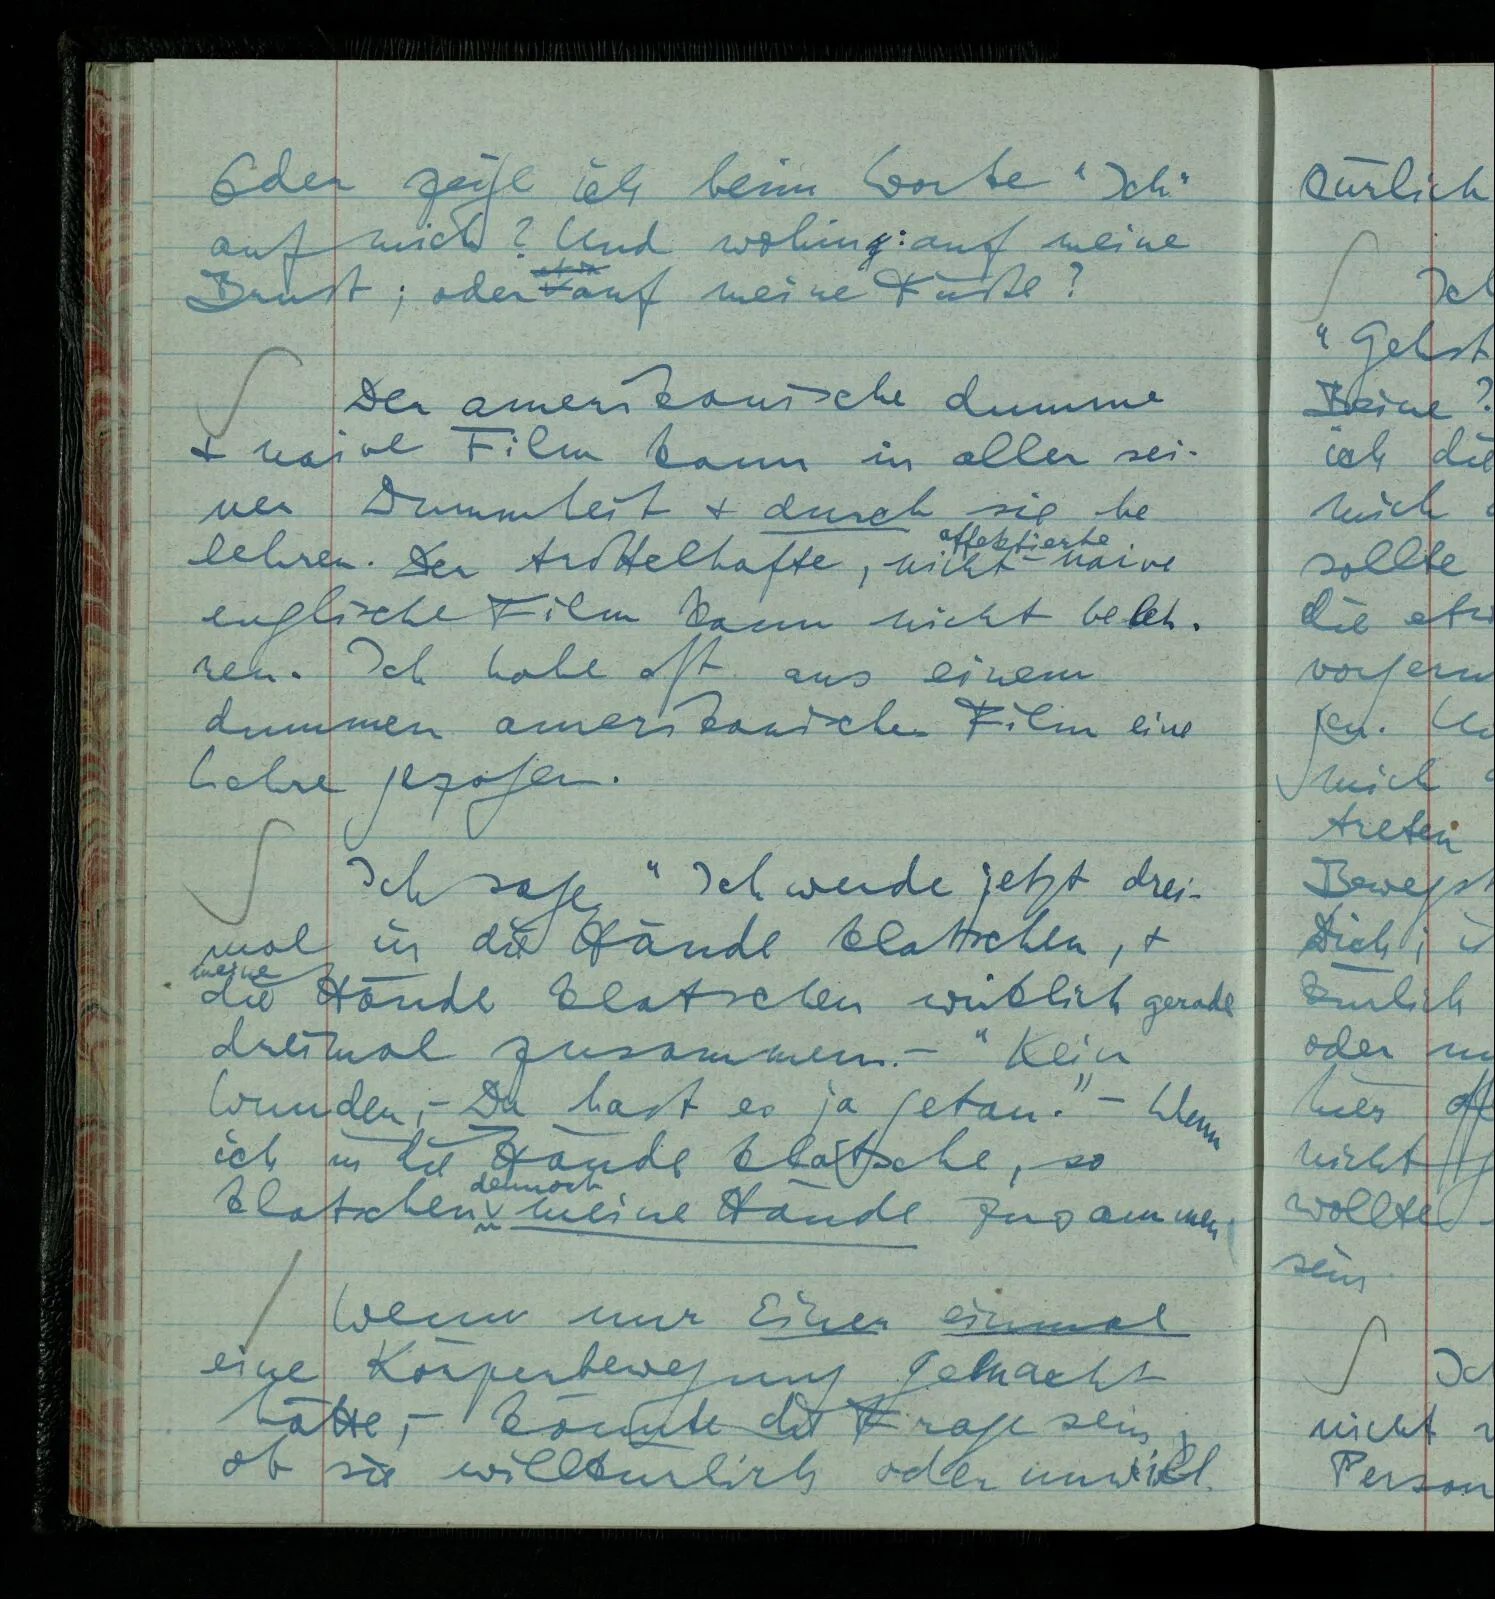 Oder zeige ich beim Worte "Ich"
auf mich? Und wohin: auf meine
Brust; oder auf meine Füße?
Der amerikanische dumme
+ naive Film kann in aller sei-
ner Dummheit + durch sie be
lehren. Der trottelhafte, nicht-naive
affektierte
englische Film kann nicht beleh-
ren. Ich habe oft aus einem
dummen amerikanischen Film eine
Lehre gezogen.
Ich sage "Ich werde jetzt drei-
mal in die Hände klatschen, +
meine
die Hände klatschen wirklich gerade
dreimal zusammen. – "Kein
Wunder, – Du hast es ja getan." – Wenn
ich in die Hände klatsche, so
dennoch
klatschen meine Hände zusammen.
Wenn nur Einer einmal
eine Körperbewegung gemacht
hätte, – könnte die Frage sein,
ob sie willkürlich oder unwill
kürlich
Ich
"Gehst
Beine?
ich die
mich
sollte
die etw
vorgenom
gen.
mich
treten
Bewegst
Dich;
kürlich
oder
hier
nicht
wollte
sein
Ich
nicht
Person